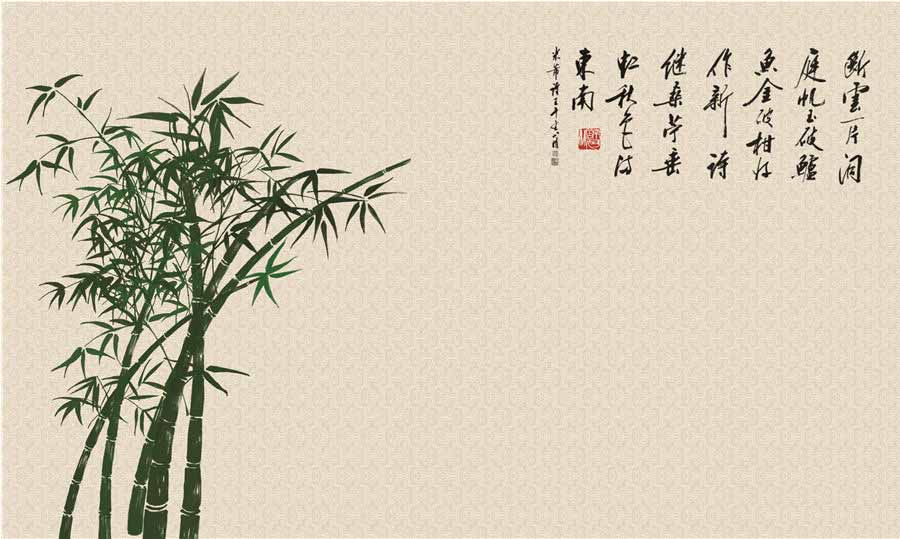 斷雲一片洞
庭帆玉破鱸
魚金破柑好
作新詩
继桑苧垂
虹秋色满
東南
米芾詩